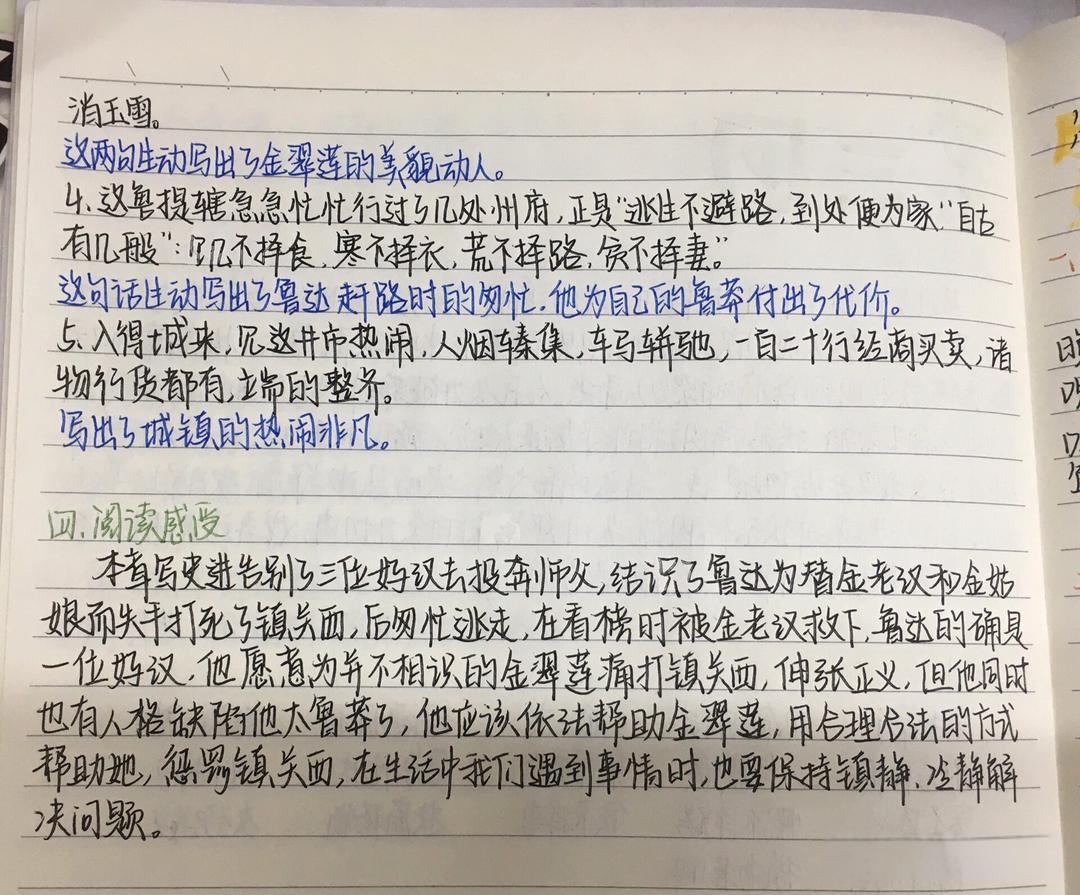 消玉雪。
这两句生动写出了金翠莲的美貌动人。
4.这鲁提辖急急忙忙行过了几处州府,正是"逃生不避路,到处便为家"自古
有几般":饥不择食,寒不择衣,荒不择路,贫不择妻。"
这句话生动写出了鲁达赶路时的匆忙.他为自己的鲁莽付出了代价。
5.入得城来,见这井市热闹,人烟辏集,车马骈驰,一百二十行经商买卖,诸
物行货都有,端的整齐。
写出了城镇的热闹非凡。
四.阅读感受
本章写史进告别了三位好汉去投奔师父,结识了鲁达为替金老汉和金姑
娘而失手打死了镇关西,后匆忙逃走,在看榜时被金老汉救下,鲁达的确是
一位好汉,他愿意为并不相识的金翠莲痛打镇关西,伸张正义,但他同时
也有人格缺陷他太鲁莽了,他应该依法帮助金翠莲,用合理合法的方式
帮助她,惩罚镇关西,在生活中我们遇到事情时,也要保持镇静、冷静解
决问题。